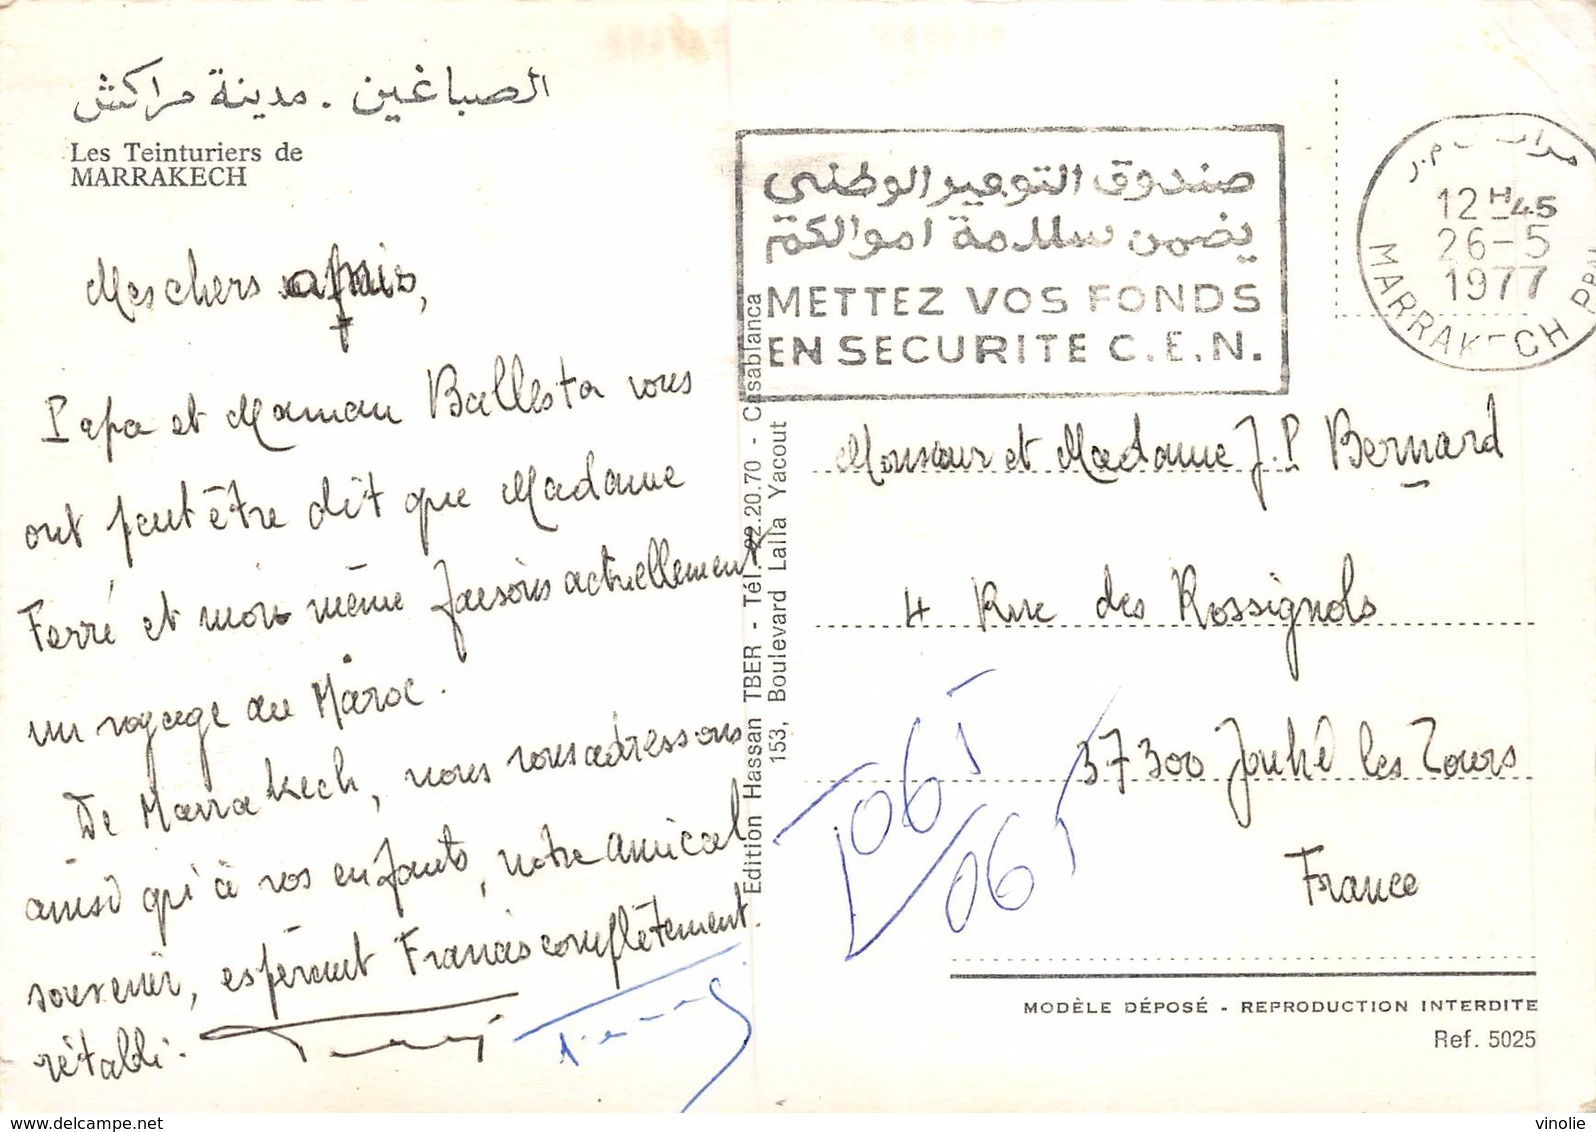 الصباغين . مدينة مراكش
Les Teinturiers de
MARRAKECH
Mes chers amis,
Papa et Maman Ballesta vous
ont peut être dit que Madame
Ferré et moi même faisons actuellement
un voyage au Maroc.
De Marrakech, nous vous adressons
ainsi qu'à vos enfants, notre amical
souvenir, espérant Francis complètement
rétabli.
Edition Hassan TBER - Tél. 22.20.70 - Casablanca
153, Boulevard Lalla Yacout
صندوق التوفير الوطني
يضمن سلامة اموالكم
METTEZ VOS FONDS
EN SECURITE C.E.N.
12 H 45
26-5
1977
MARRAKECH PPAL
Monsieur et Madame J.P Bernard
4 Rue des Rossignols
37300 Jouhé les Tours
France
MODÈLE DÉPOSÉ - REPRODUCTION INTERDITE
Ref. 5025
www.delcampe.net
vinolie